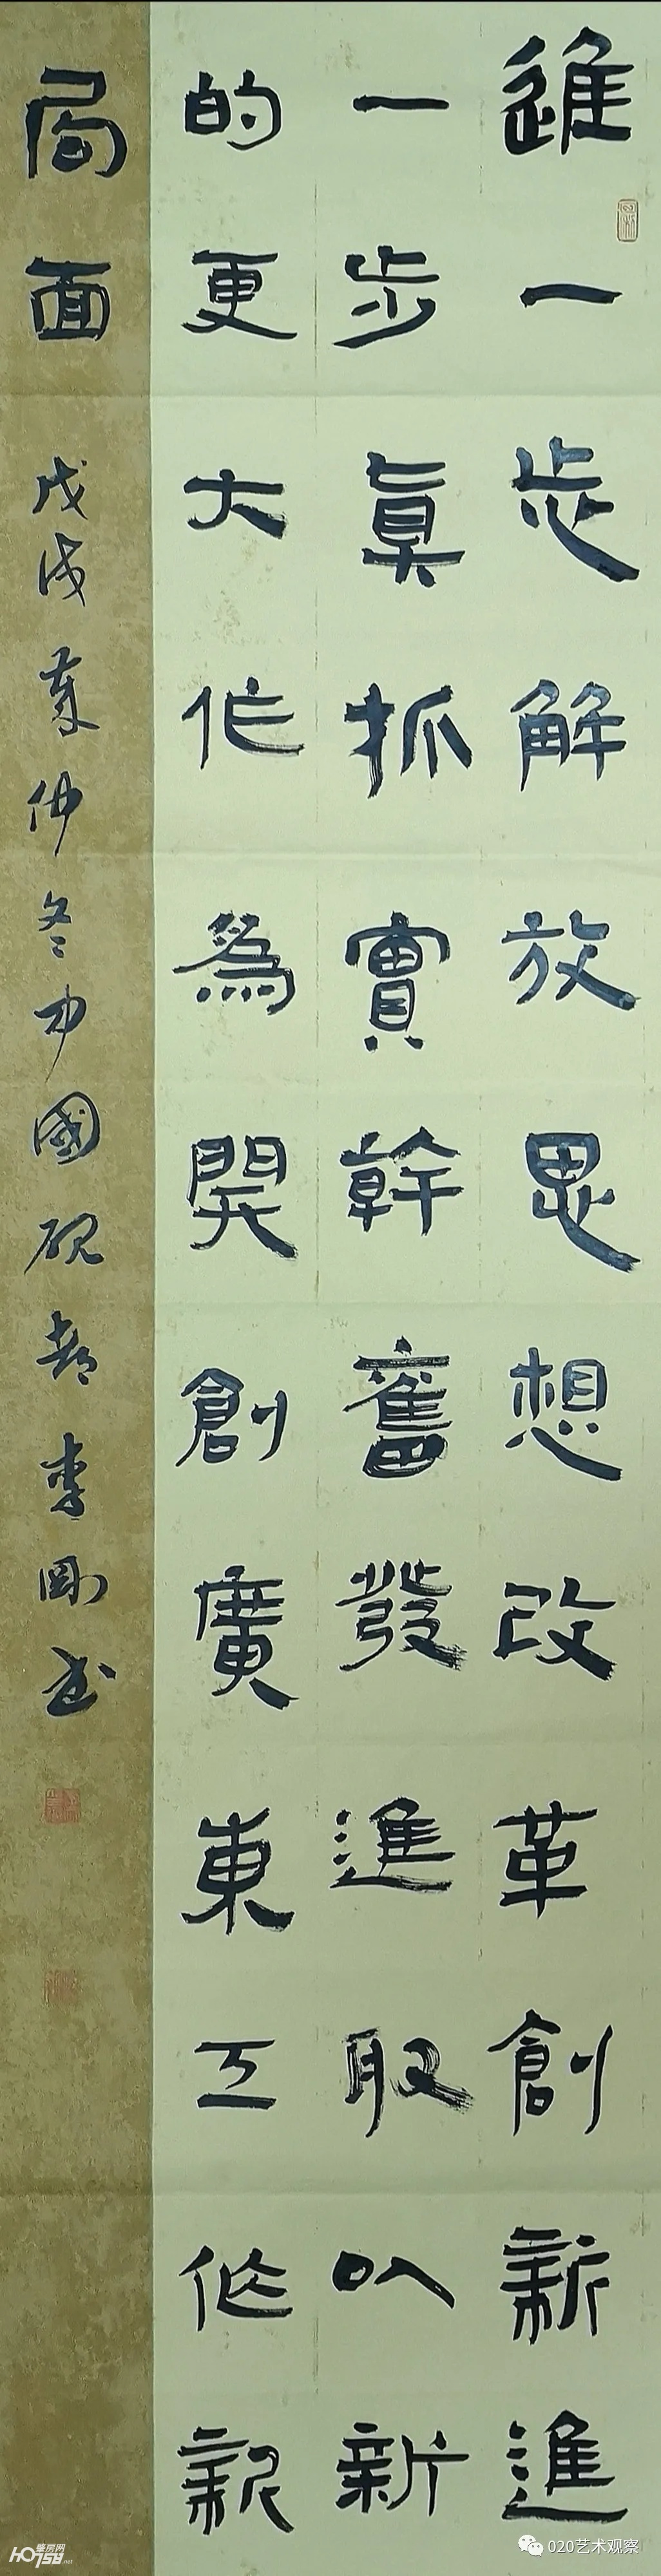 進一步解放思想改革創新進
一步真抓實幹奮發進取以新
的更大作為開創廣東工作新
局面
戊戌 仲冬 國 都李剛書
020艺术观察
HO758.net